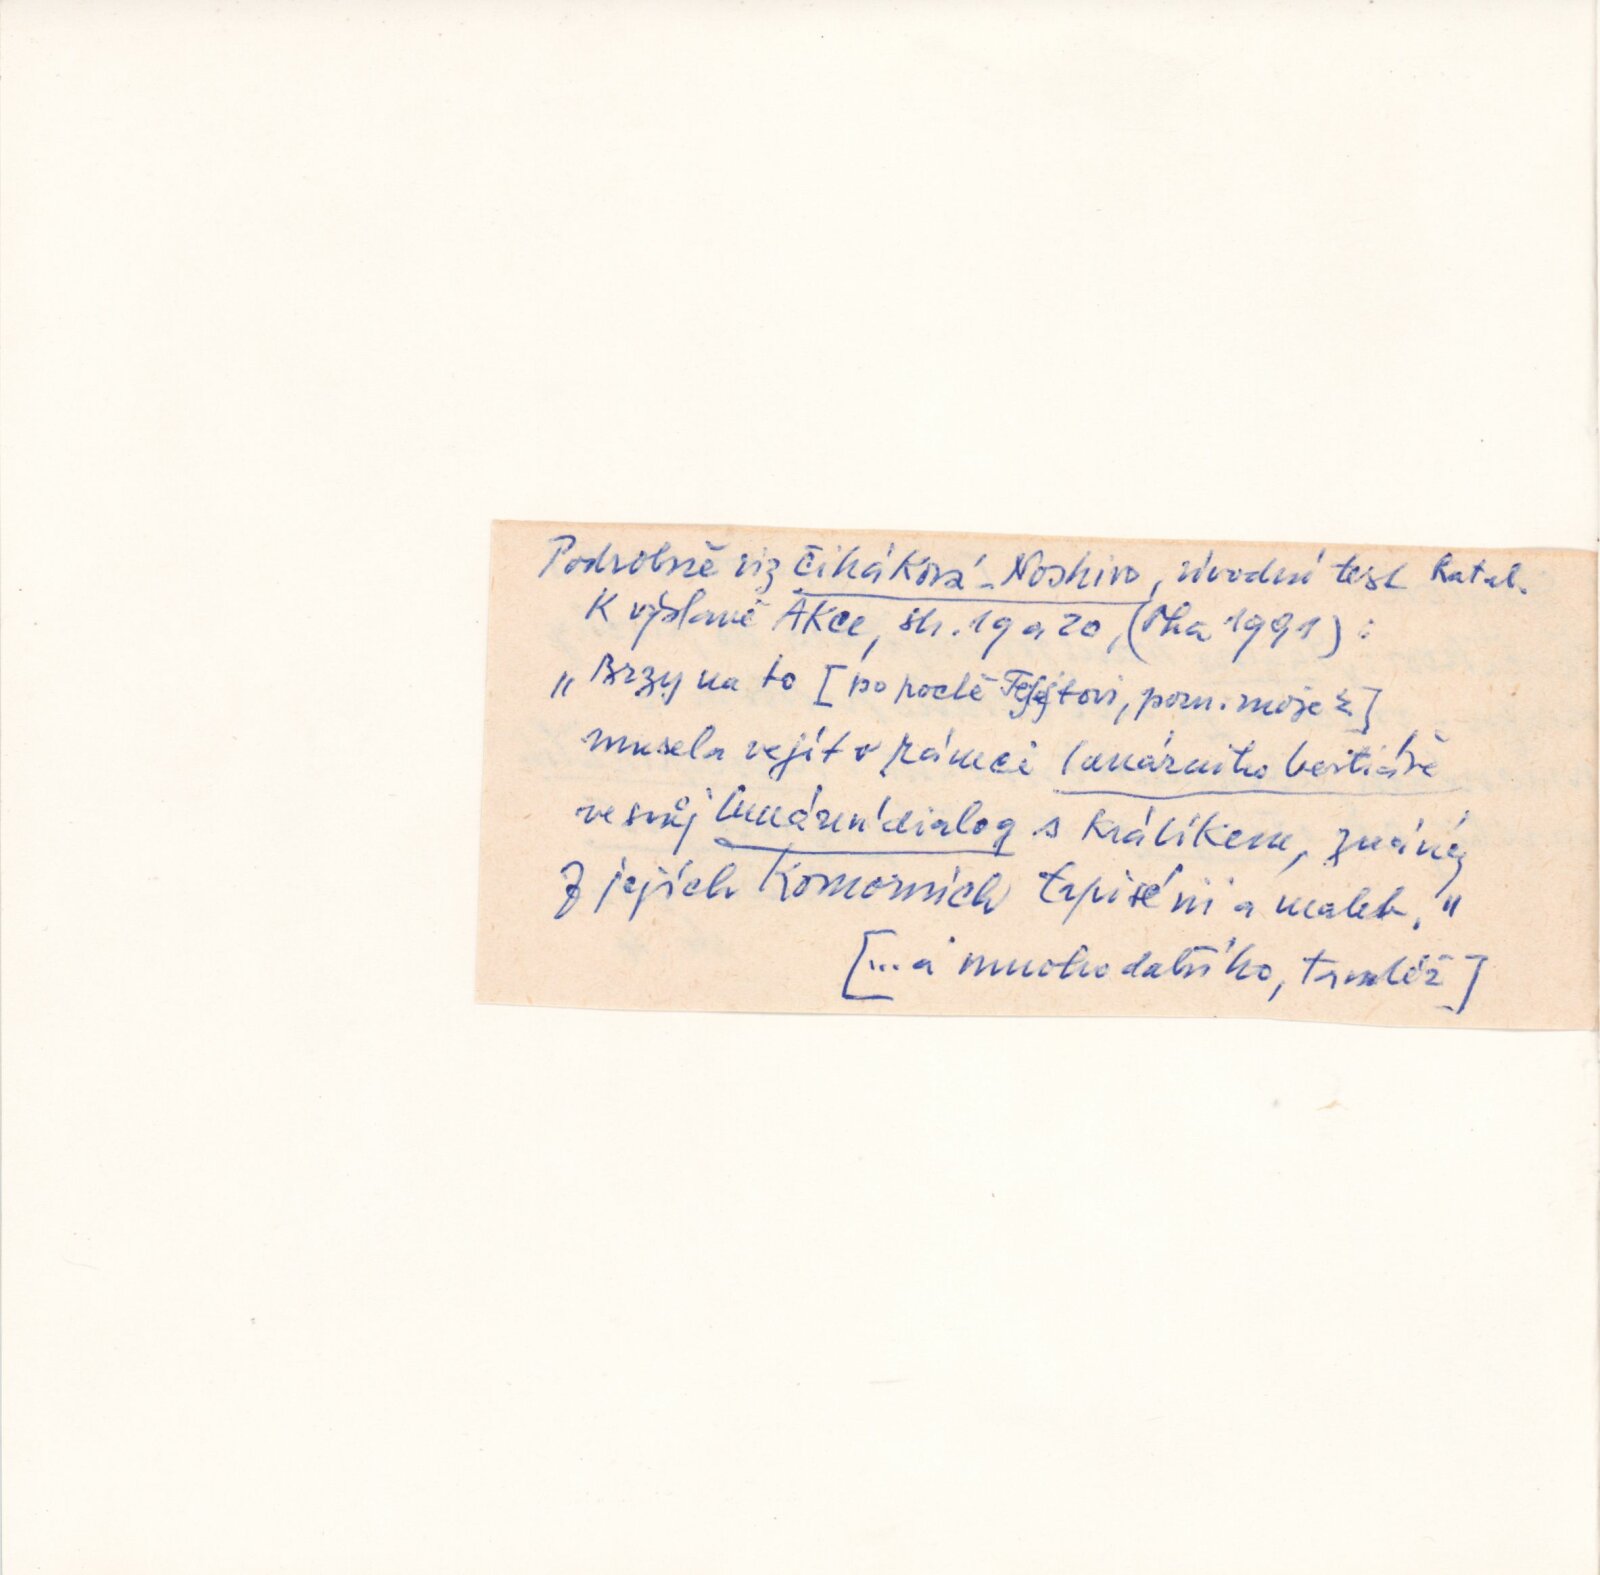 Podrobně viz Čiháková-Noshiro, úvodní text katal.
K výstavě AKce, str. 19 a 20, (Pha 1991):
„Brzy na to [po poctě
musela vejít v rámci lunárního bestiáře
ve svůj lunární dialog s králíkem, známý
z jejích Komorních tapisérií a maleb."
[... a mnoho dalšího, tamtéž]